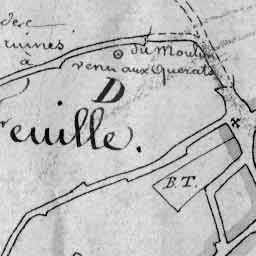 ruines
à
du Moulin
venu aux Querats
D
euille.
B.T.